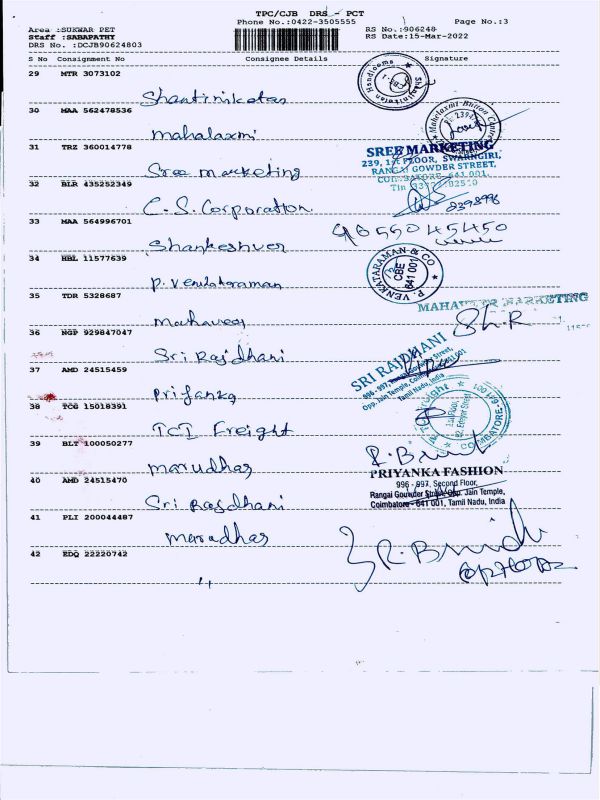 TPC/CJB DRS - PCT
Phone No.:0422-3505555
Page No.:3
Area :SUKWAR PET
RS No.:906248
Staff :SABAPATHY
RS Date:15-Mar-2022
DRS No. :DCJB90624803
S No Consignment No Consignee Details Signature
29 MTR 3073102
Shantiniketan
30 MAA 562478536
Mahalaxmi
31 TRZ 360014778
Sree Marketing
SREE MARKETING
239, 1st FLOOR, SWARNGIRI,
RANGAI GOWDER STREET,
COIMBATORE-641 001.
32 BLR 435252349
C.S. Corporation
33 MAA 564996701
Shankeshver
9655045450
34 HBL 11577639
P. Venkataraman
P. VENKATARAMAN & CO
CBE
641 001
35 TDR 5328687
Mahaveer
MARKETING
36 NGP 929847047
Sri Rajdhani
SRI RAJDHANI
Opp. Jain Temple,
Tamil Nadu, India
37 AMD 24515459
Priyanka
38 TCG 15018391
TCI Freight
39 BLT 100050277
Marudhar
PRIYANKA FASHION
996 - 997, Second Floor,
Rangai Gowder Street, Opp. Jain Temple,
Coimbatore - 641 001, Tamil Nadu, India
40 AMD 24515470
Sri Rajdhani
41 PLI 200044487
Marudhar
42 EDQ 22220742
"